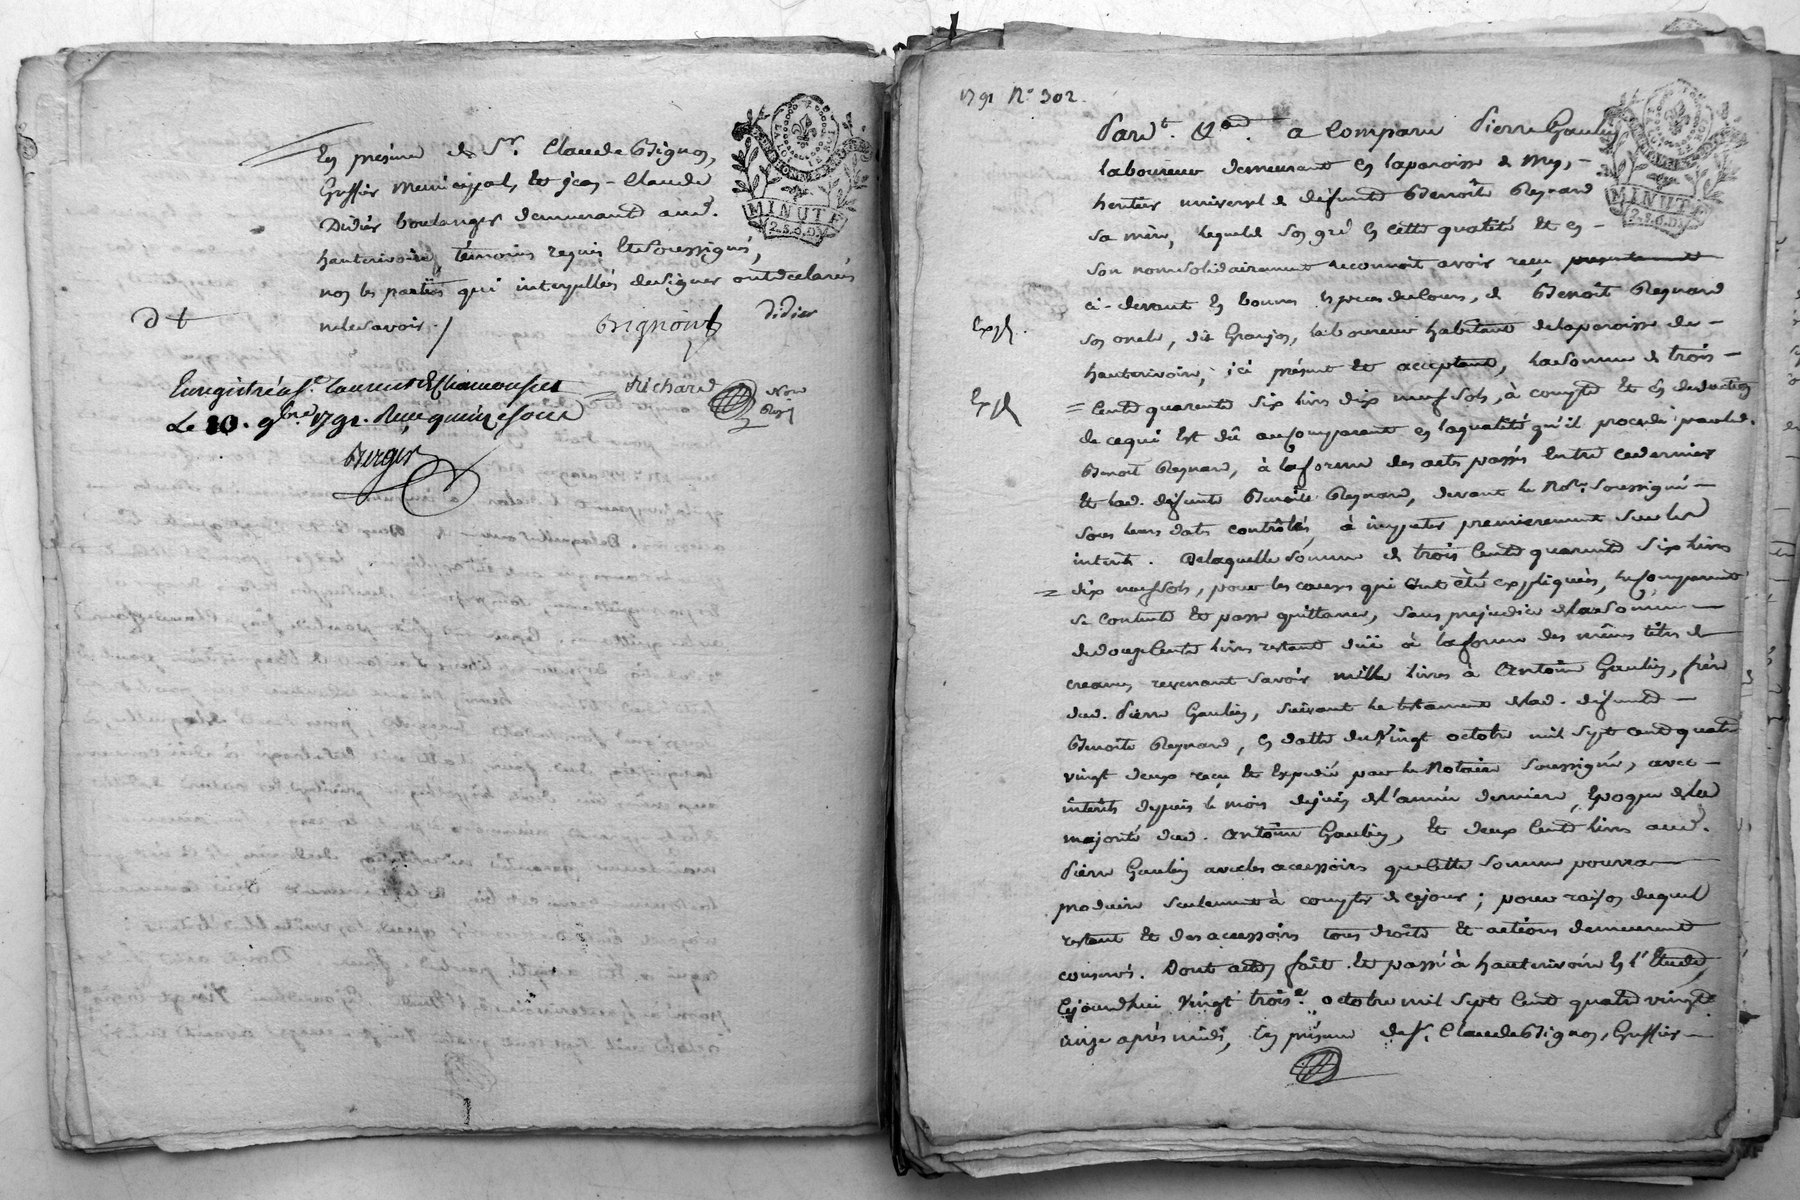 En présence de Sr. Claude Bignon,
Greffier Municipal, et jean-Claude
Didier boulanger demeurant aud.
hauterivoire, témoins requis et soussignés,
non les parties qui interpellées designer ont declarés
nelesavoir./
Bignon
Didier
Richard
Enregistré a St. Laurent de Chamousset
Le 10. 9bre 1791. Reçu quinze sous
Berger
LA LOI ET LE ROI
MINUTE
2.S.6.D.
1791 N° 302.
Pardt. &a. a Comparu Pierre Gaulin
laboureur demeurant en laparoisse de Mys,
heritier universel de défunte Benoîte Reynard
sa mère, lequel de son gré en cette qualité et en
son nom solidairement reconnoit avoir reçu présentement
ci-devant en bonnes especes de cours, de Benoît Reynard
son oncle, dit Granjon, laboureur habitant de la paroisse de
hauterivoire, ici présent et acceptant, la somme de trois
Expd.
Expd
= Cent quarente six livres dix neuf sols, à compte et en deduction
de cequi est dû au Comparant en la qualité qu'il procede par led.
Benoit Reynard, à la forme des actes passés entre ce dernier
et lad. défunte Benoîte Reynard, devant le Nore. soussigné
sous leurs dates contrôlés, à imputer premierement sur les
interets. Delaquelle somme de trois Cent quarente six livres
= dix neuf sols, pour les causes qui ont été expliquées, le Comparant
se contente et passe quittance, sans prejudice de la somme
de douze Cents livres restant düe à la forme des mêmes titres de
creances revenant savoir mille livres à Antoine Gaulin, frère
dud. Pierre Gaulin, suivant le testament de lad. défunte
Benoîte Reynard, en datte du Vingt octobre mil sept cent quatre
vingt deux reçu et expedié par le Notaire soussigné, avec
interêts depuis le mois de juin de l'année derniere, Epoque de la
majorité dud. Antoine Gaulin, et deux Cent livres aud.
Pierre Gaulin avec les accessoires que cette somme pourra
produire seulement à compter de cejour; pour raison duquel
restant et des accessoires tous droits et actions demeurent
conservés. Dont acte, fait et passé à hauterivoire en l'Etude,
Cejourd'hui vingt trois e. octobre mil sept Cent quatre vingt
onze après midi, En présence de sr. Claude Bignon, Greffier
MINUTE
2.S.6.D.